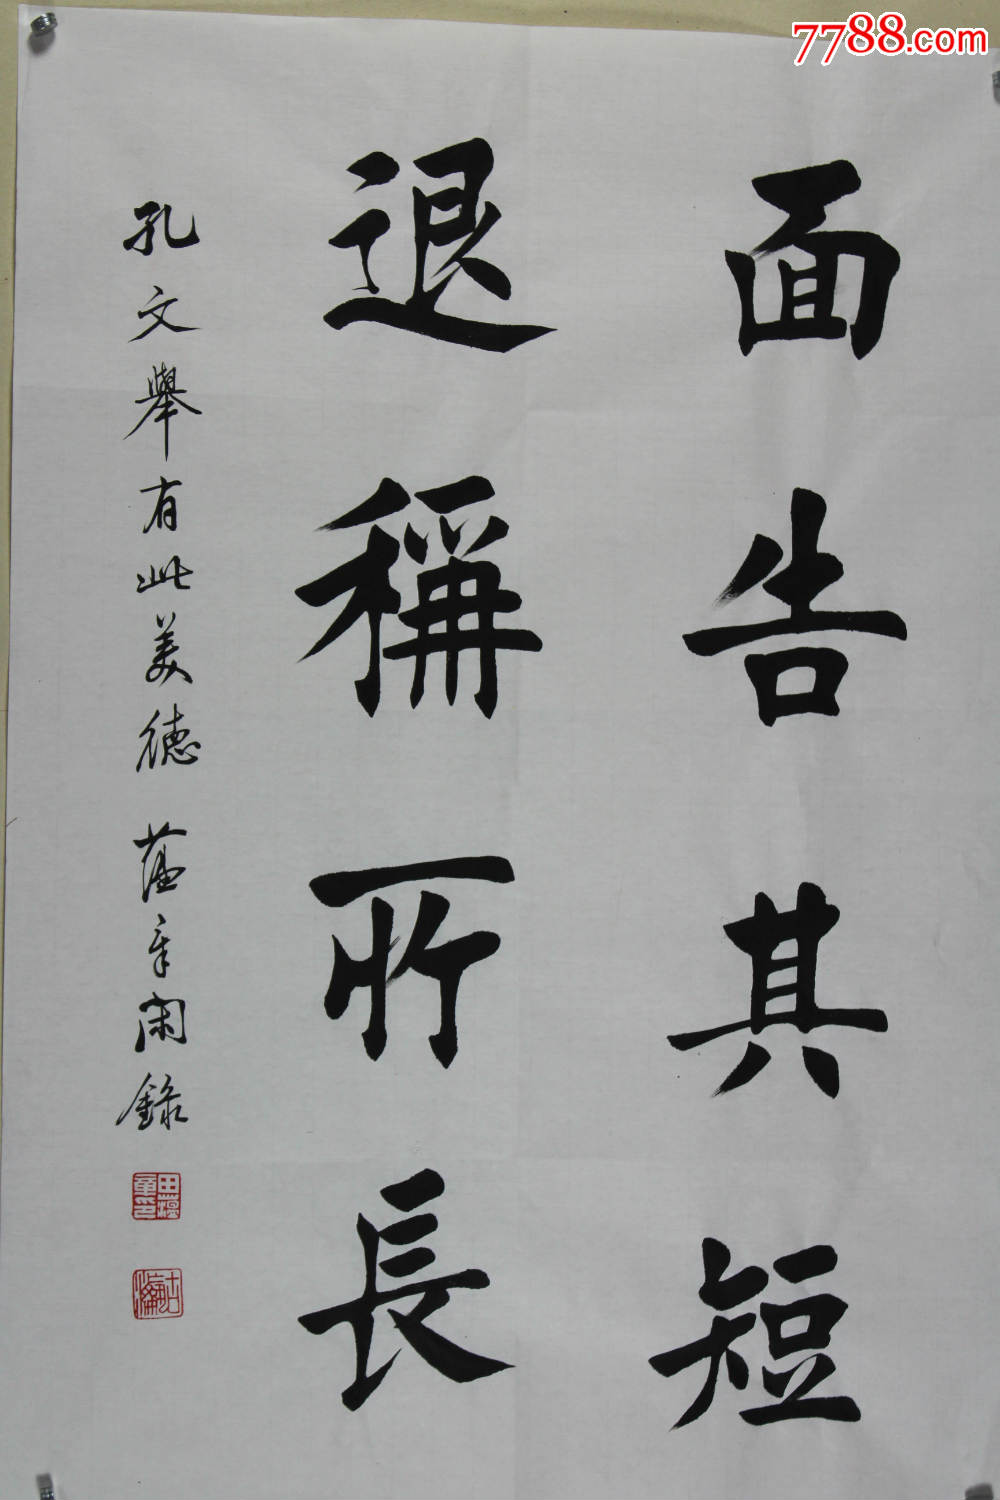 7788.com
面告其短
退稱所長
孔文舉有此美德 蘊章閑錄
田蘊章印